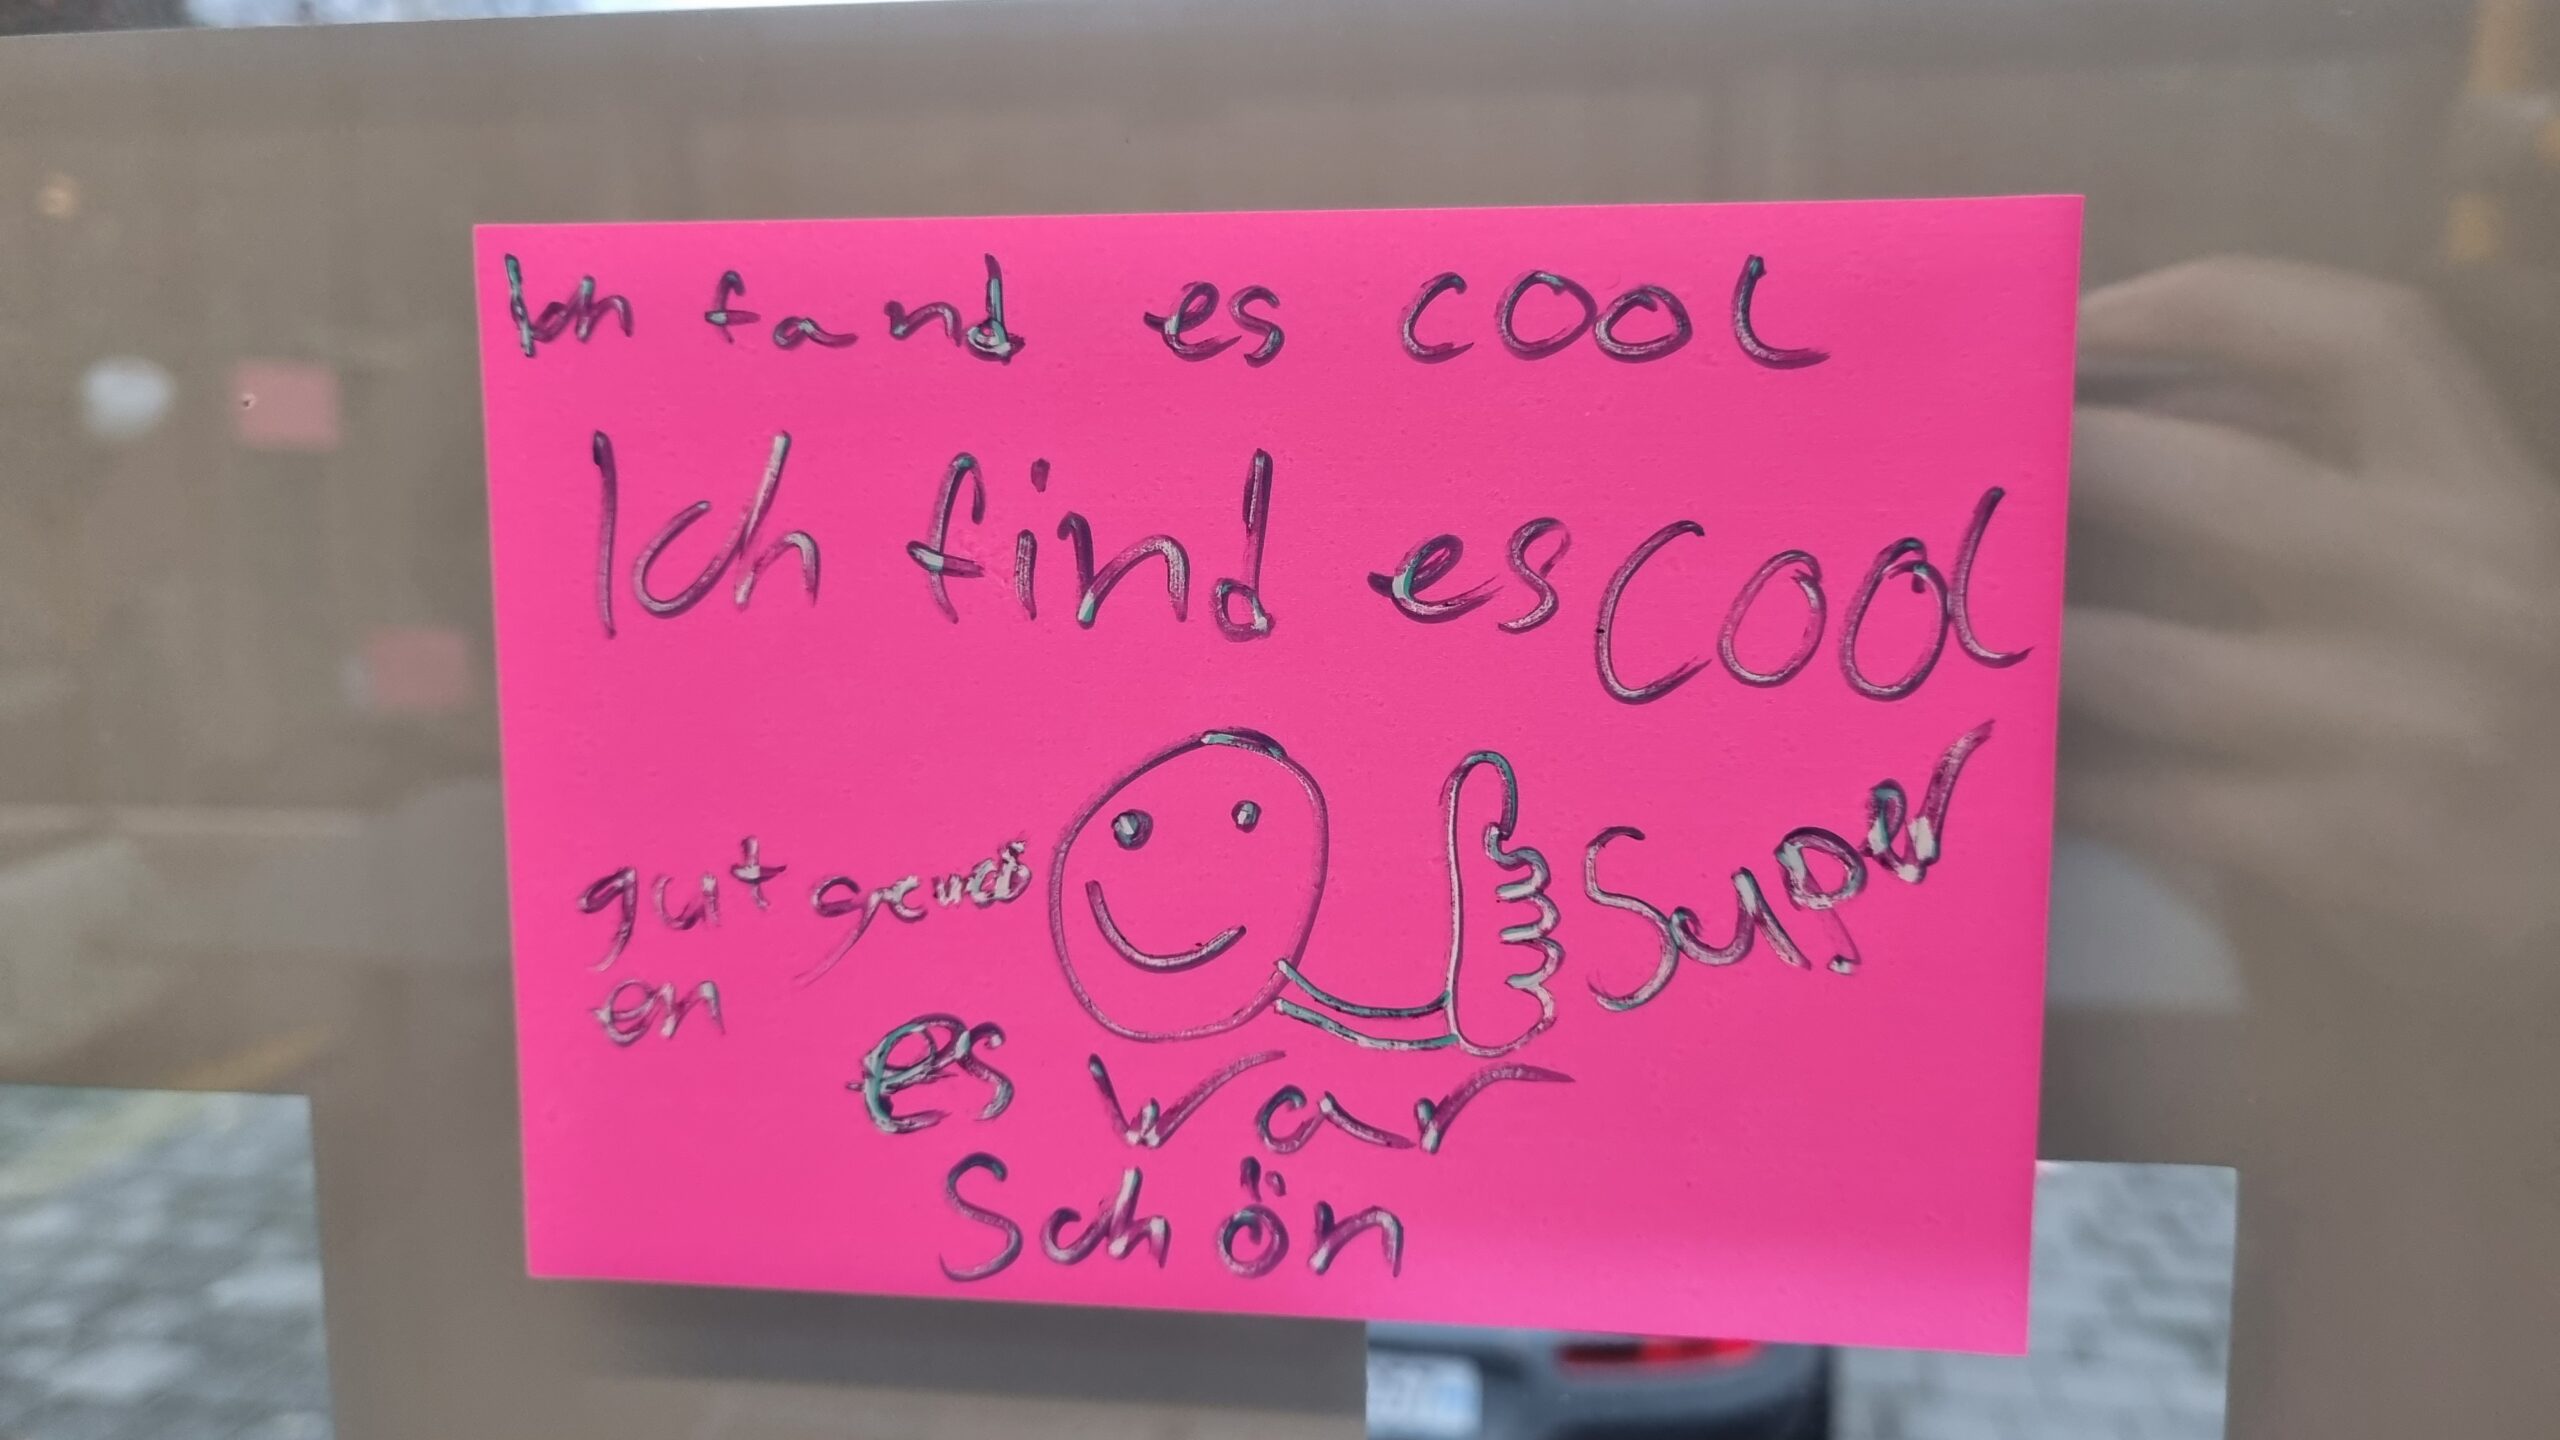 Ich fand es cool
Ich find es cool
gut gewes
en
Super
es war
Schön